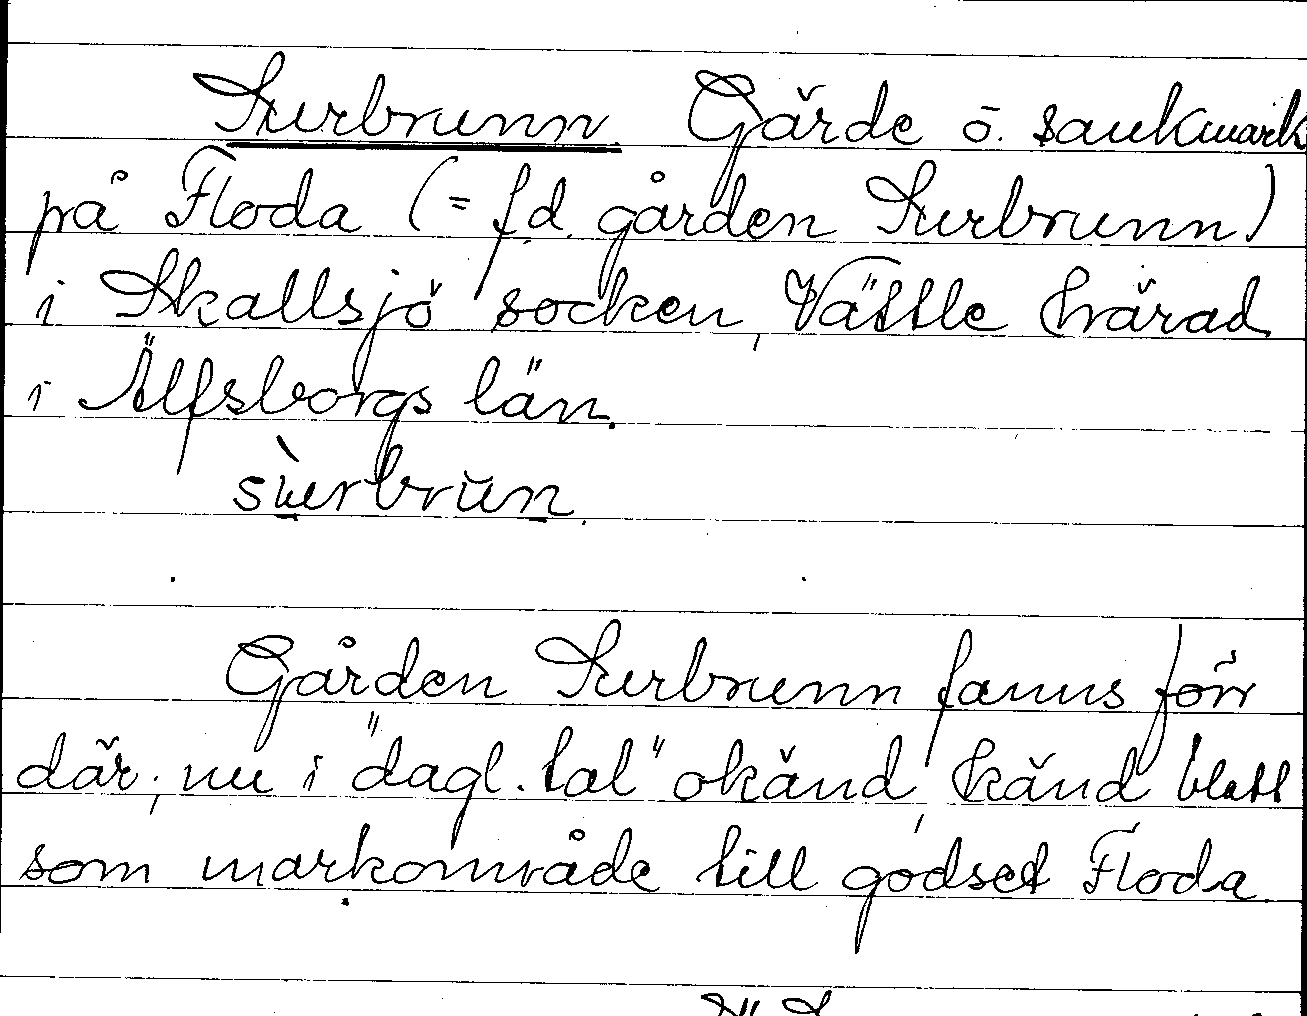 Surbrunn Gärde o. sankmark
på Floda (= f.d. gården Surbrunn)
i Skallsjö socken, Vättle härad
i Älfsborgs län.
Gården Surbrunn fanns förr
där; nu i "dagl. tal" okänd, känd blott
som markområde till godset Floda